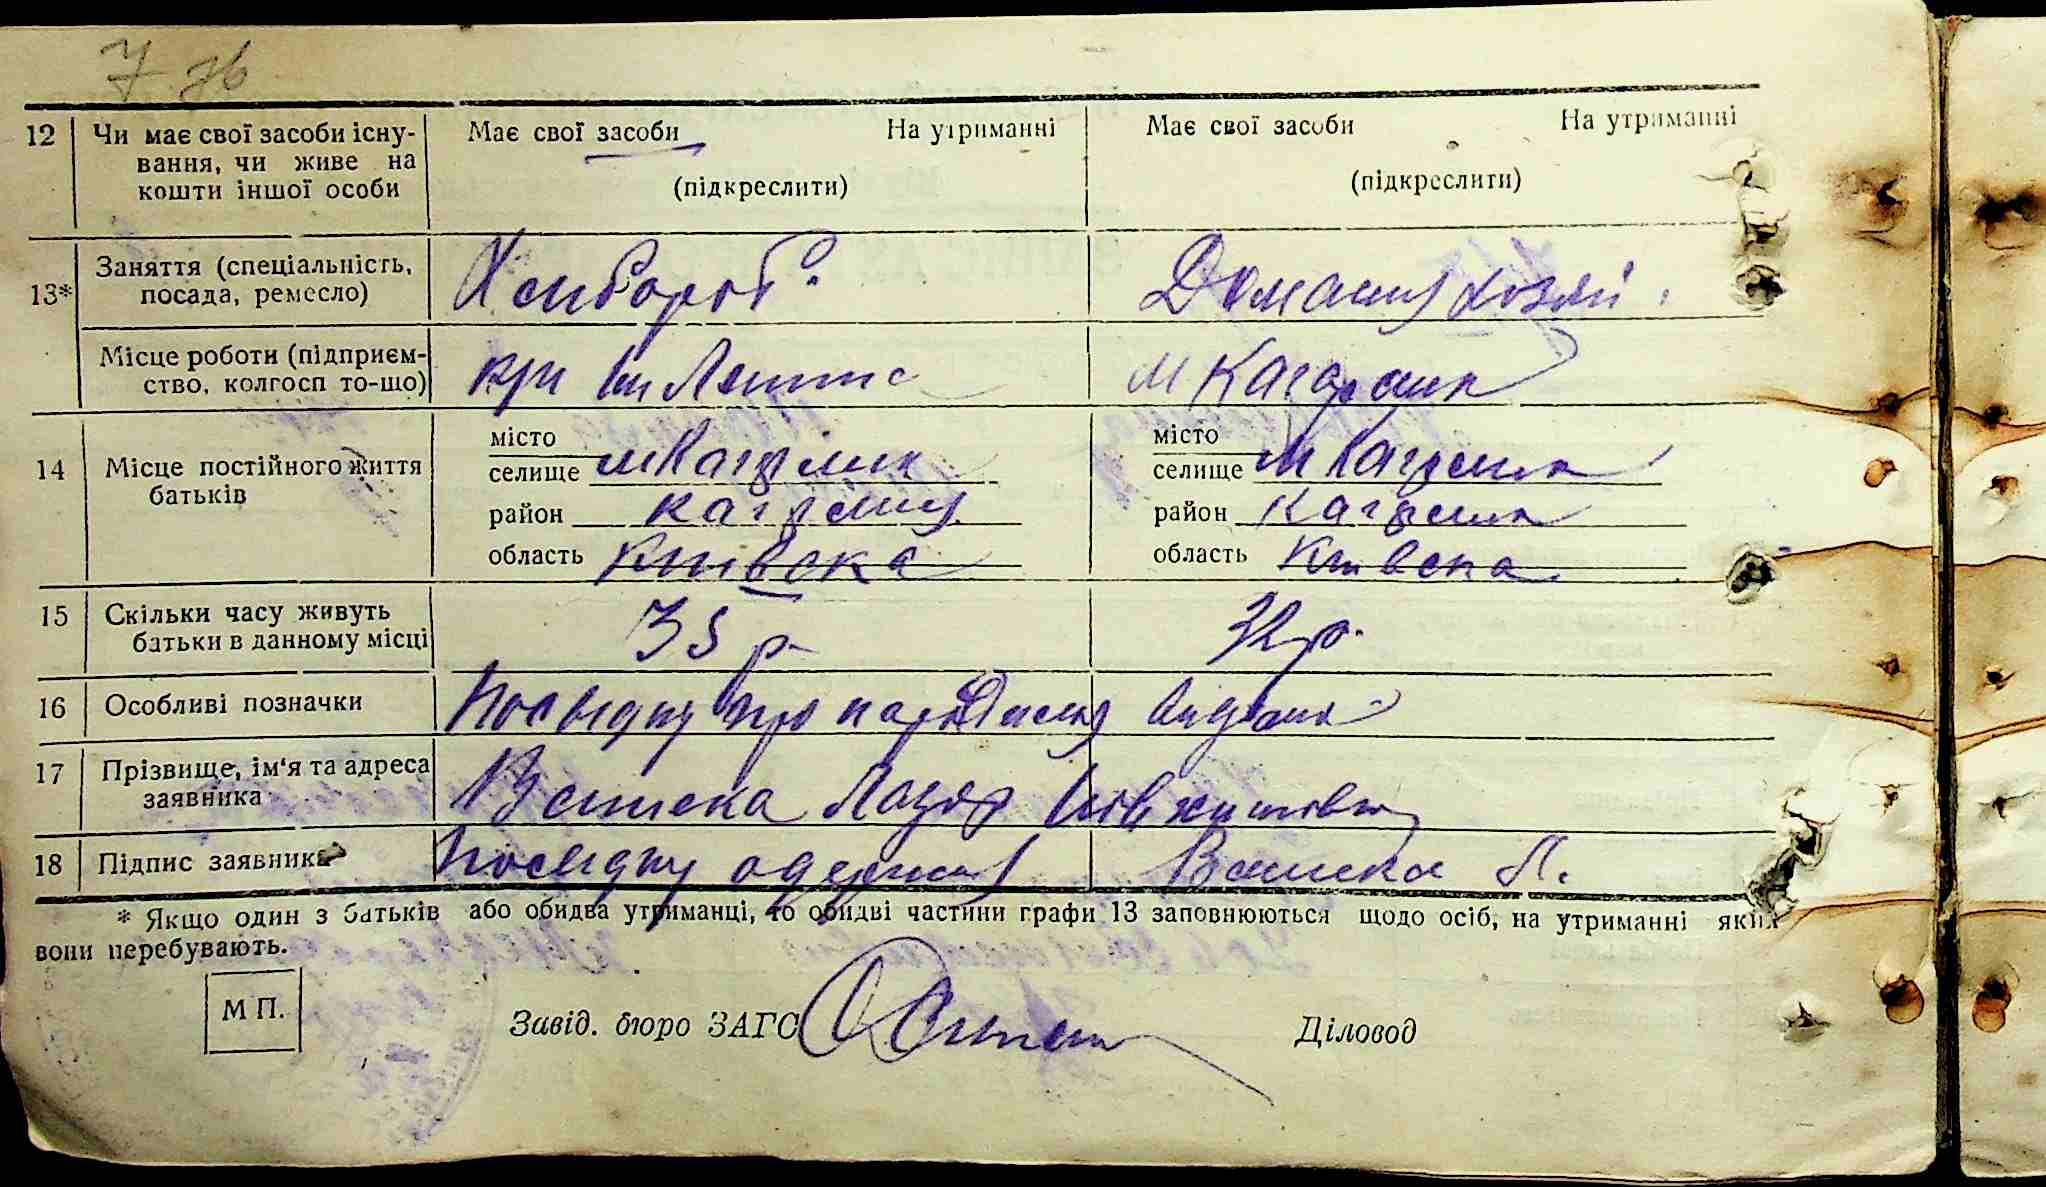 12 Чи має свої засоби існу- Має свої засоби На утриманні Має свої засоби На утриманні
вання, чи живе на
кошти іншої особи (підкреслити) (підкреслити)
13* Заняття (спеціальність, Хлібороб.
посада, ремесло) Домашня хозяй.
Місце роботи (підприєм- м Кагарлик
ство, колгосп то-що)
14 Місце постійного життя місто місто
батьків селище м Кагарлик селище м Кагарлик
район Кагарлиц район Кагарлик
область Київска область Київска
15 Скільки часу живуть 35 р. 32 р.
батьки в данному місці
16 Особливі позначки Посвідку про народження видана
17 Прізвище, ім'я та адреса
заявника Лазар
18 Підпис заявника Посвідку одержав Л.
* Якщо один з батьків або обидва утриманці, то обидві частини графи 13 заповнюються щодо осіб, на утриманні яких
вони перебувають.
М П. Завід. бюро ЗАГС Діловод